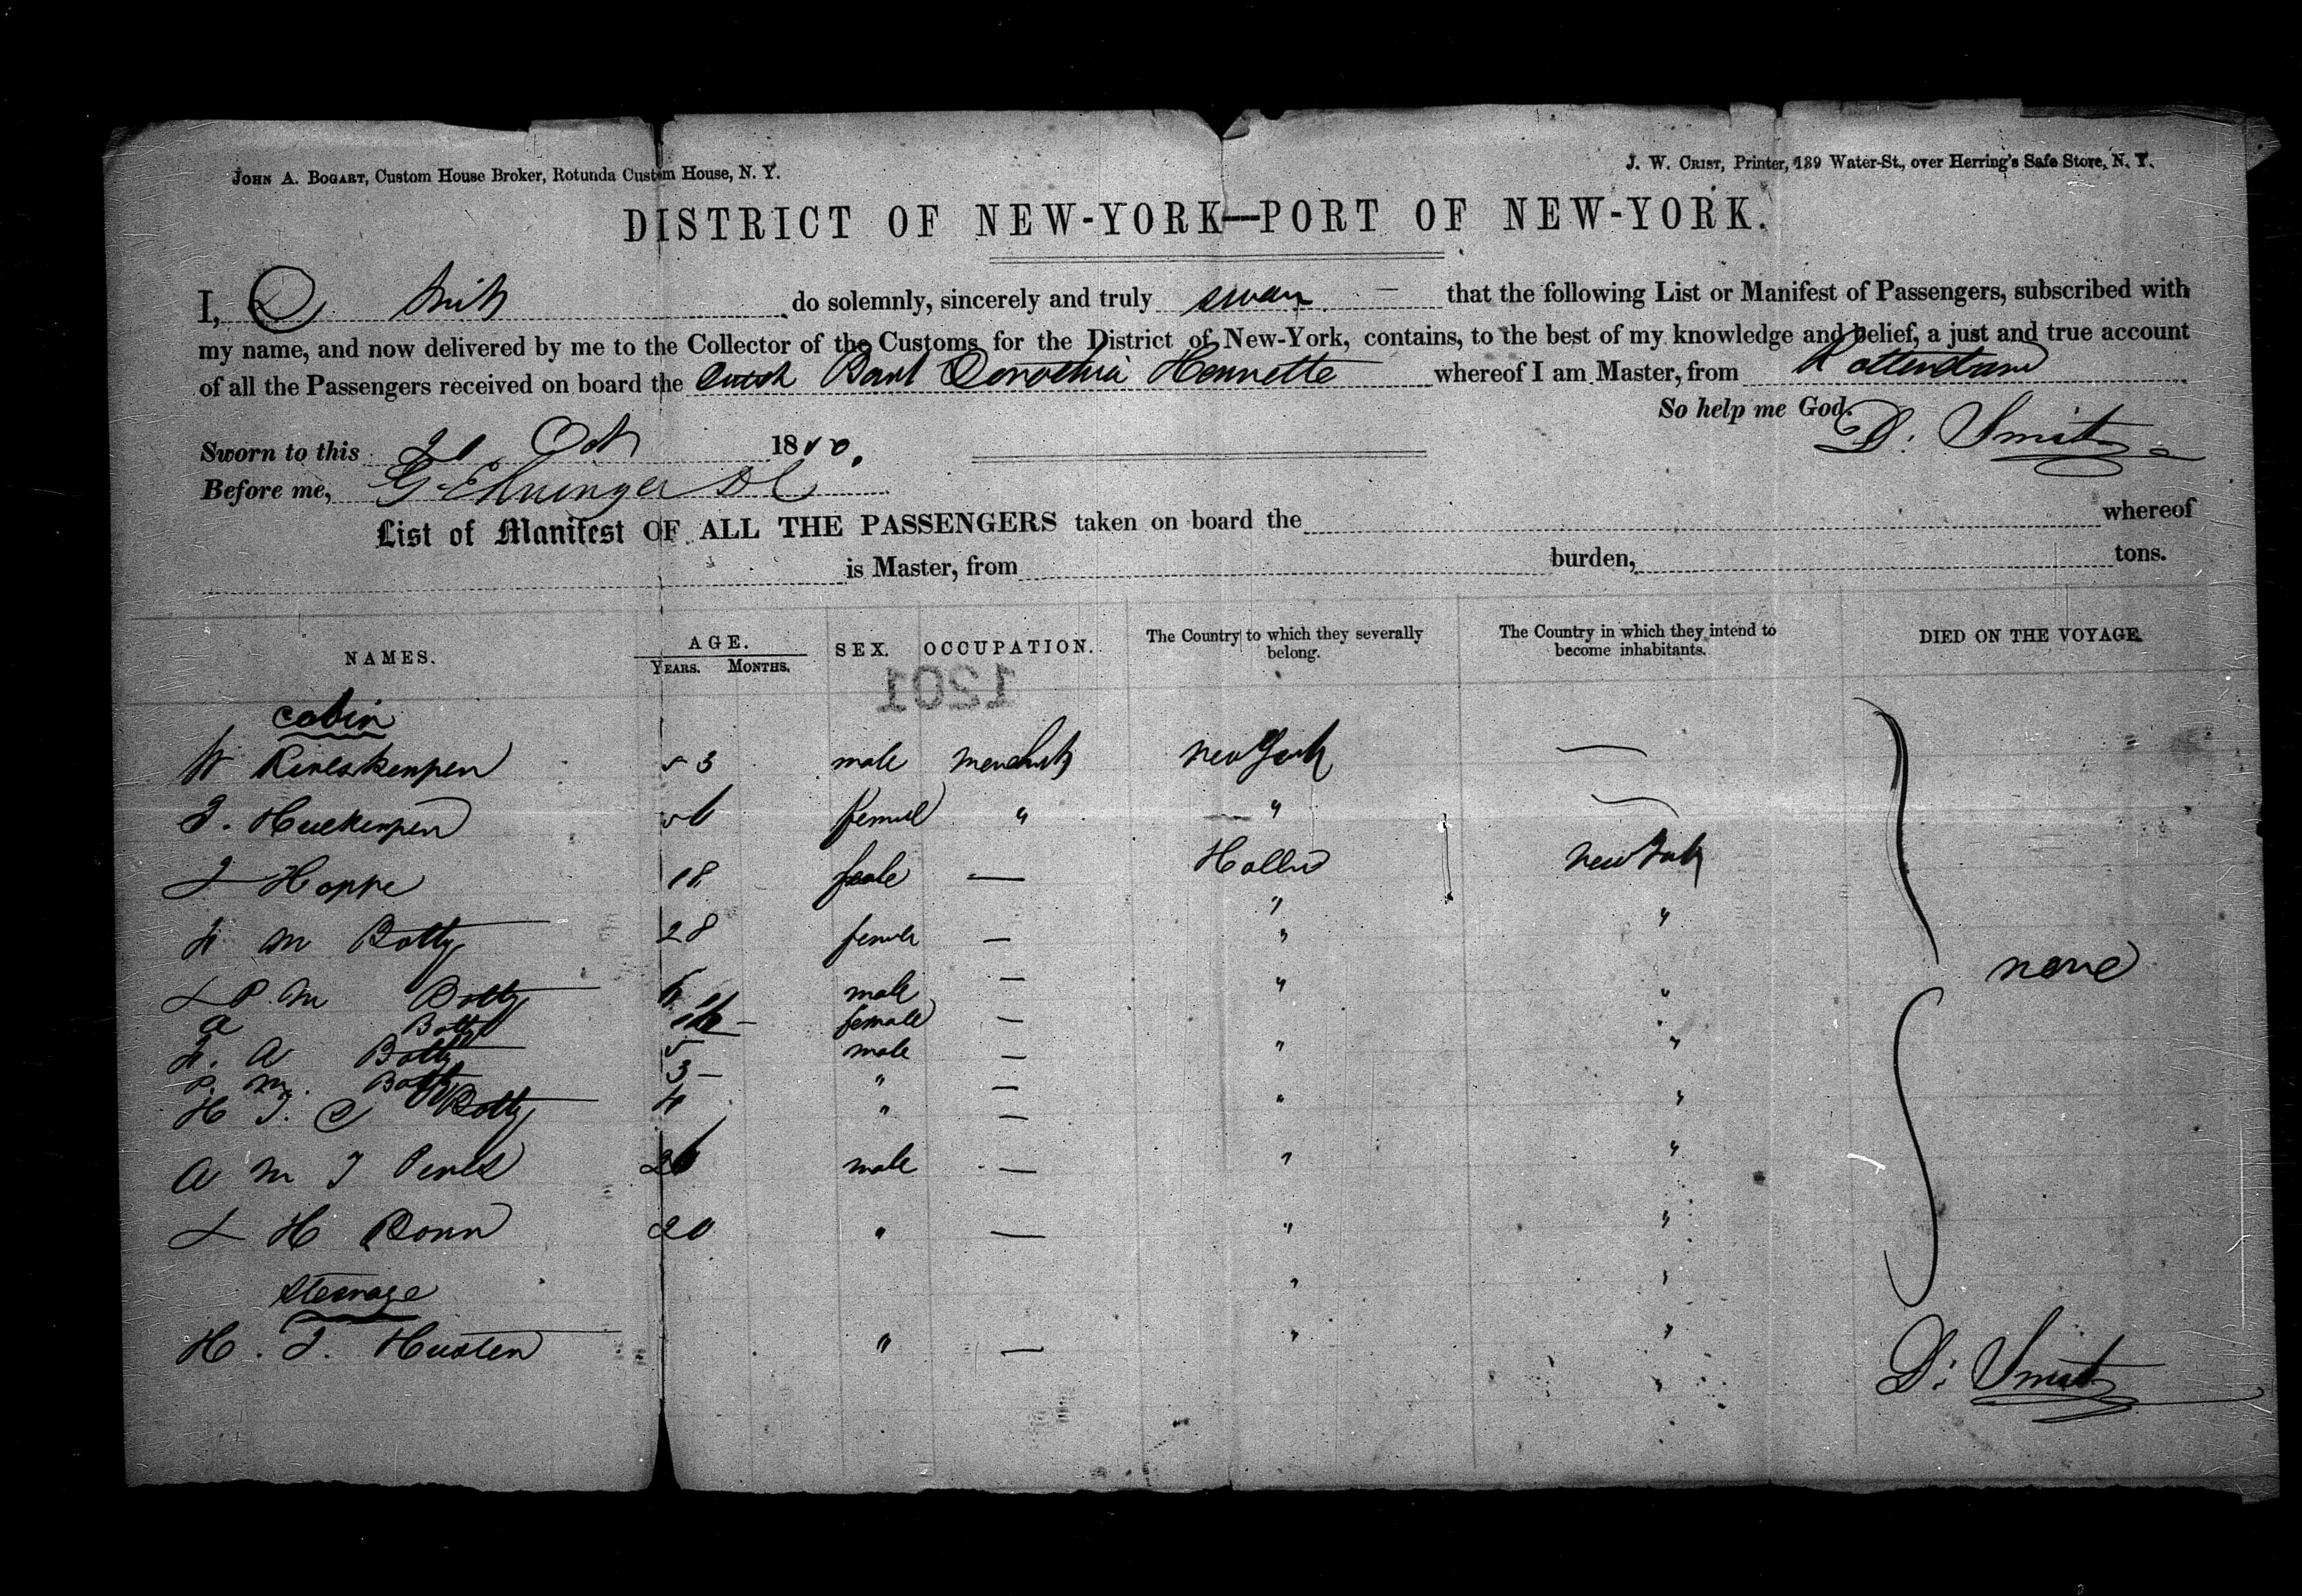 JOHN A. BOGART, Custom House Broker, Rotunda Custom House, N. Y.
J. W. CRIST, Printer, 139 Water-St., over Herring's Safe Store, N. Y.
DISTRICT OF NEW-YORK—PORT OF NEW-YORK.
I, D Smit do solemnly, sincerely and truly swear that the following List or Manifest of Passengers, subscribed with
my name, and now delivered by me to the Collector of the Customs for the District of New-York, contains, to the best of my knowledge and belief, a just and true account
of all the Passengers received on board the Dutch Bark Dorothia Hennette whereof I am Master, from Rotterdam
So help me God.
D. Smit
Sworn to this 21 Oct 1850.
Before me,
List of Manifest OF ALL THE PASSENGERS taken on board the whereof
is Master, from burden, tons.
NAMES. AGE. YEARS. MONTHS. SEX. OCCUPATION. The Country to which they severally belong. The Country in which they intend to become inhabitants. DIED ON THE VOYAGE.
1201
cabin
53 male New York —
female " " —
Hoppe 18 — Holland New York
M Botty 28 female — " "
P. M Botty male — " "
a Botty female —
A Botty 5 male — " "
P. M. Botty 3 — " —
H J. C Botty 4 " — " "
none
A M J male — " "
H Bonn 20 " — " "
Steerage " "
H. J. Husten " — " "
D. Smit